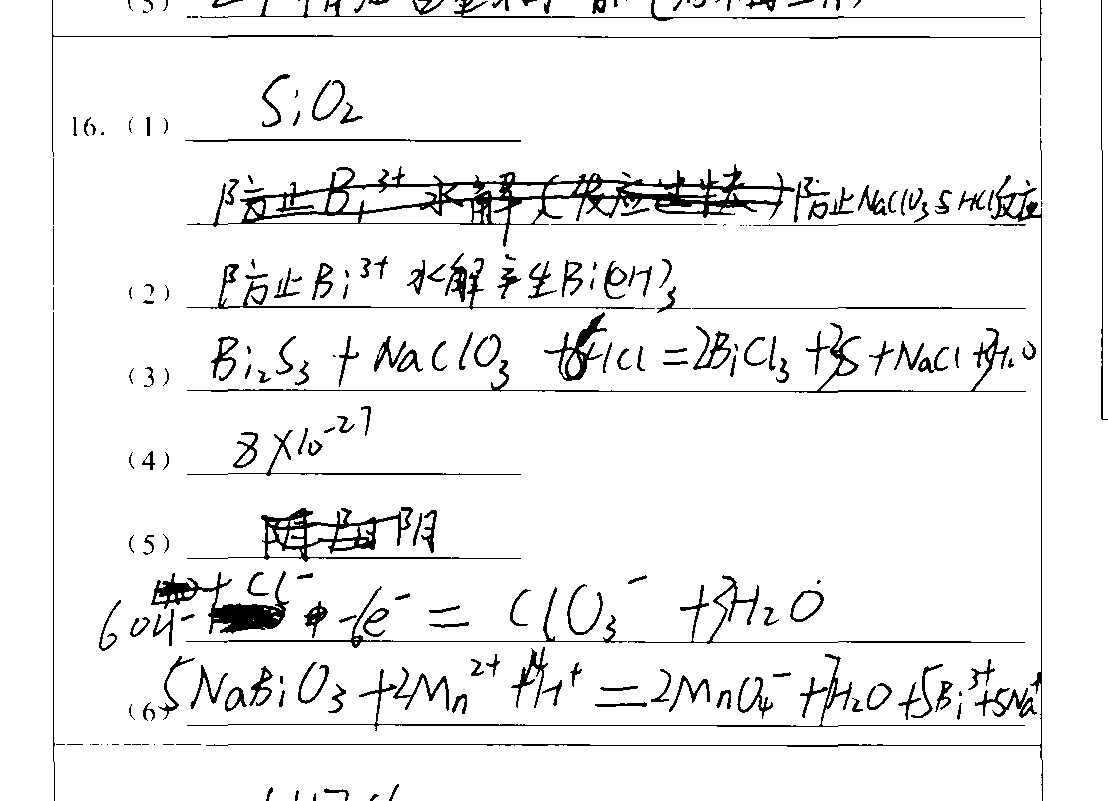 16. (1) SiO₂
防止Bi³⁺水解(反应过快)防止NaClO₃与HCl反应
(2) 防止Bi³⁺水解产生Bi(OH)₃
(3) Bi₂S₃ + NaClO₃ + 6HCl = 2BiCl₃ + 3S + NaCl + 3H₂O
(4) 8×10⁻²⁷
(5) 阴
6OH⁻ + Cl⁻ - 6e⁻ = ClO₃⁻ + 3H₂O
(6) 5NaBiO₃ + 2Mn²⁺ + 14H⁺ = 2MnO₄⁻ + 7H₂O + 5Bi³⁺ + 5Na⁺